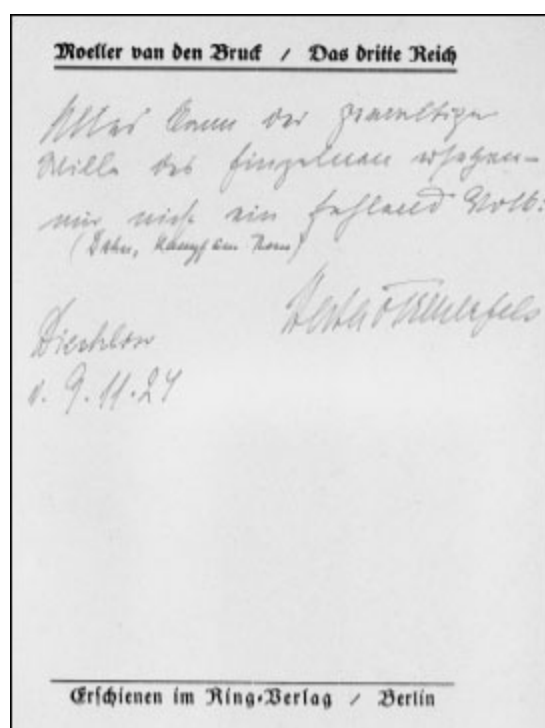 Moeller van den Bruck / Das dritte Reich
Alles kann der gewaltige
Wille des Einzelnen ersetzen –
nur nicht ein fehlend Volk.
(Dahn, Kampf um Rom)
v. 9.11.24
Erschienen im Ring-Verlag / Berlin